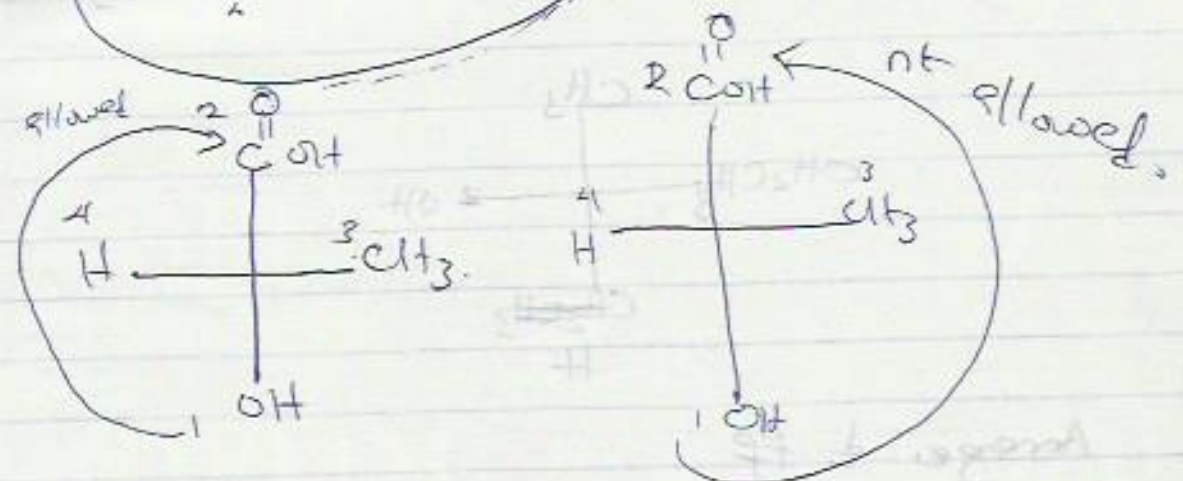 allowed
2 O
||
C OH
4
H
3
CH3.
1 OH
O
||
2 C OH
nt
allowed.
4
H
3
CH3
1 OH